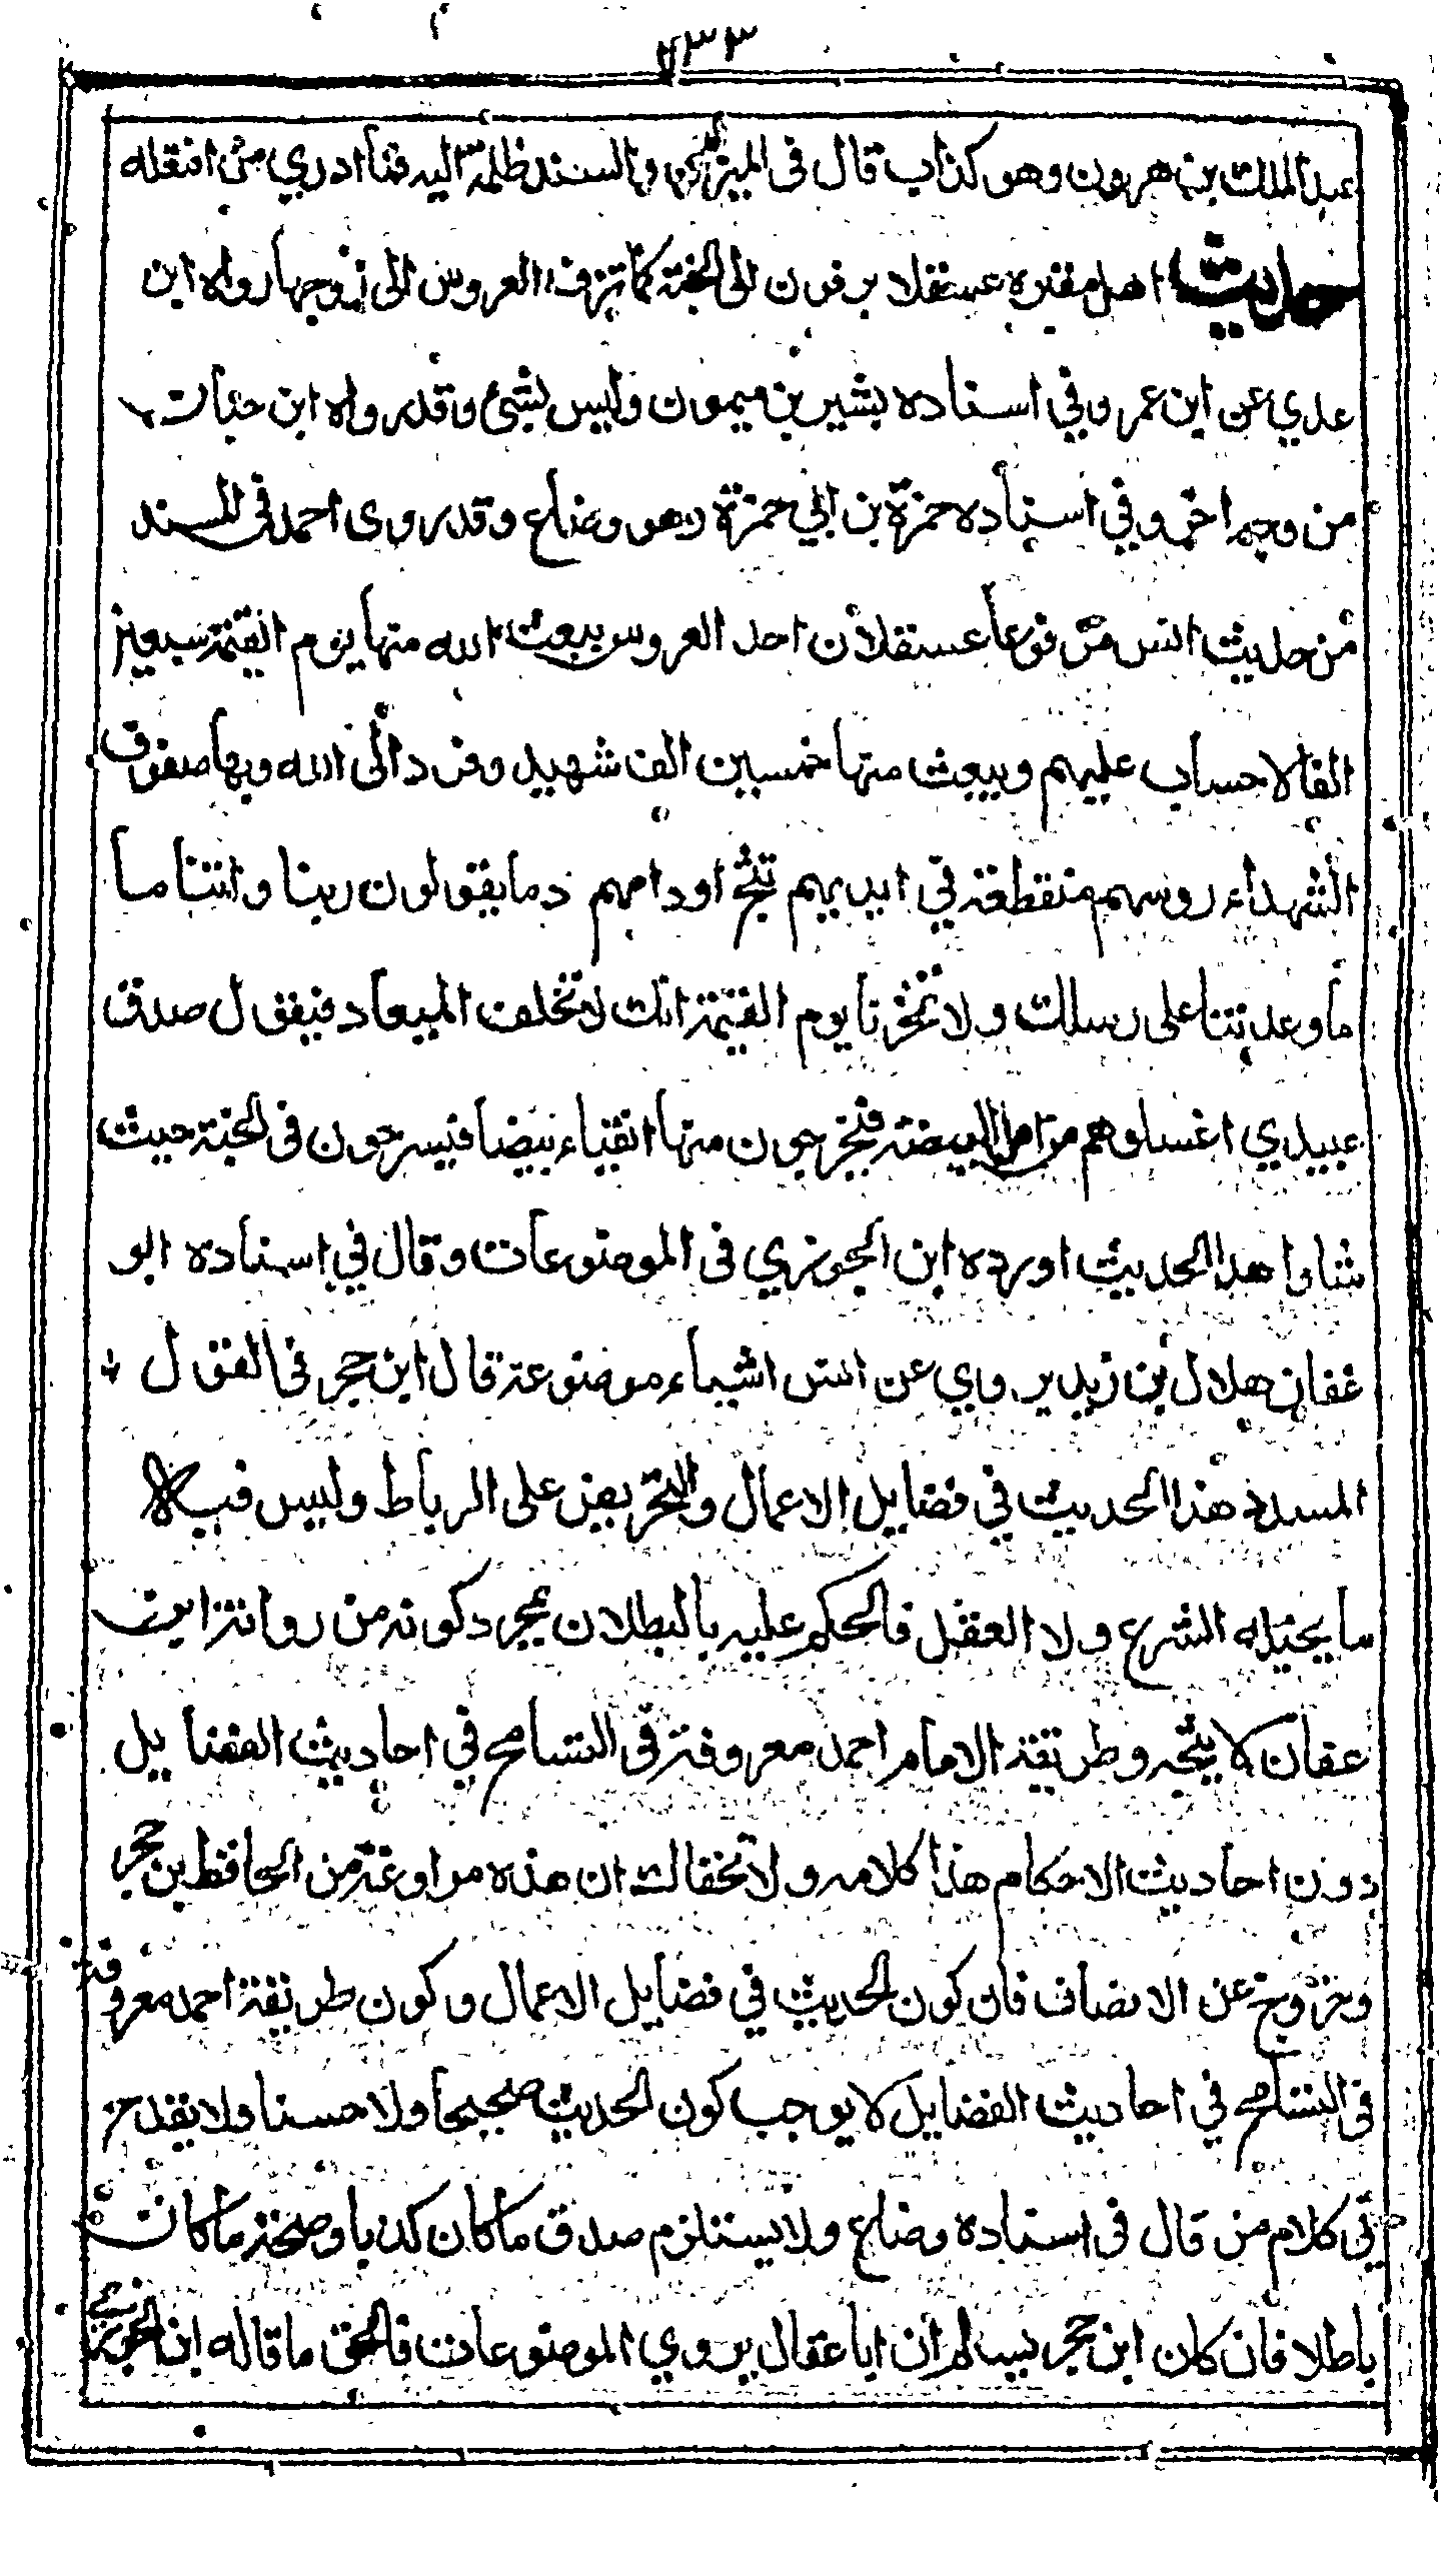 ٧٣٣
عبد الملك بن هرون وهو كذاب قال في الميزان والسند ظلمة اليه فما ادري من افتعله
حديث اهل مقبرة عسقلان يزفون الى الجنة كما تزف العروس الى زوجها رواه ابن
عدي عن ابن عمر وفي اسناده بشير بن ميمون وليس بشئ وقد رواه ابن حبان
من وجه اخر وفي اسناده حمزة بن ابي حمزة وهو وضاع وقد روى احمد في المسند
من حديث انس مرفوعا عسقلان احد العروس يبعث الله منها يوم القيمة سبعين
الفا لا حساب عليهم ويبعث منها خمسين الف شهيد وفدا الى الله وبها صفوف
الشهداء روسهم منقطعة في ايديهم تثج اوداجهم دما يقولون ربنا واتنا ما
ما وعدتنا على رسلك ولا تخزنا يوم القيمة انك لا تخلف الميعاد فيقول صدق
عبيدي اغسلوهم من البيضة فيخرجون منها انقياء بيضا فيسرحون في الجنة حيث
شاوا هذا الحديث اورده ابن الجوزي في الموضوعات وقال في اسناده ابو
عقال هلال بن زيد يروي عن انس اشياء موضوعة قال ابن حجر في القول
المسدد هذا الحديث في فضايل الاعمال والتحريض على الرباط وليس فيه
ما يحيله الشرع ولا العقل فالحكم عليه بالبطلان بمجرد كونه من رواية ابي
عقال لا يتجه وطريقة الامام احمد معروفة في التسامح في احاديث الفضايل
دون احاديث الاحكام هذا كلامه ولا يخفاك ان هذه مراوغة من الحافظ بن حجر
وخروج عن الانصاف فان كون الحديث في فضايل الاعمال وكون طريقة احمد معروفة
في التسامح في احاديث الفضايل لا يوجب كون الحديث صحيحا ولا حسنا ولا يقدح
في كلام من قال في اسناده وضاع ولا يستلزم صدق ما كان كذبا وصحة ما كان
باطلا فان كان ابن حجر يسلم ان ابا عقال يروي الموضوعات فالحق ما قاله ابن الجوزي